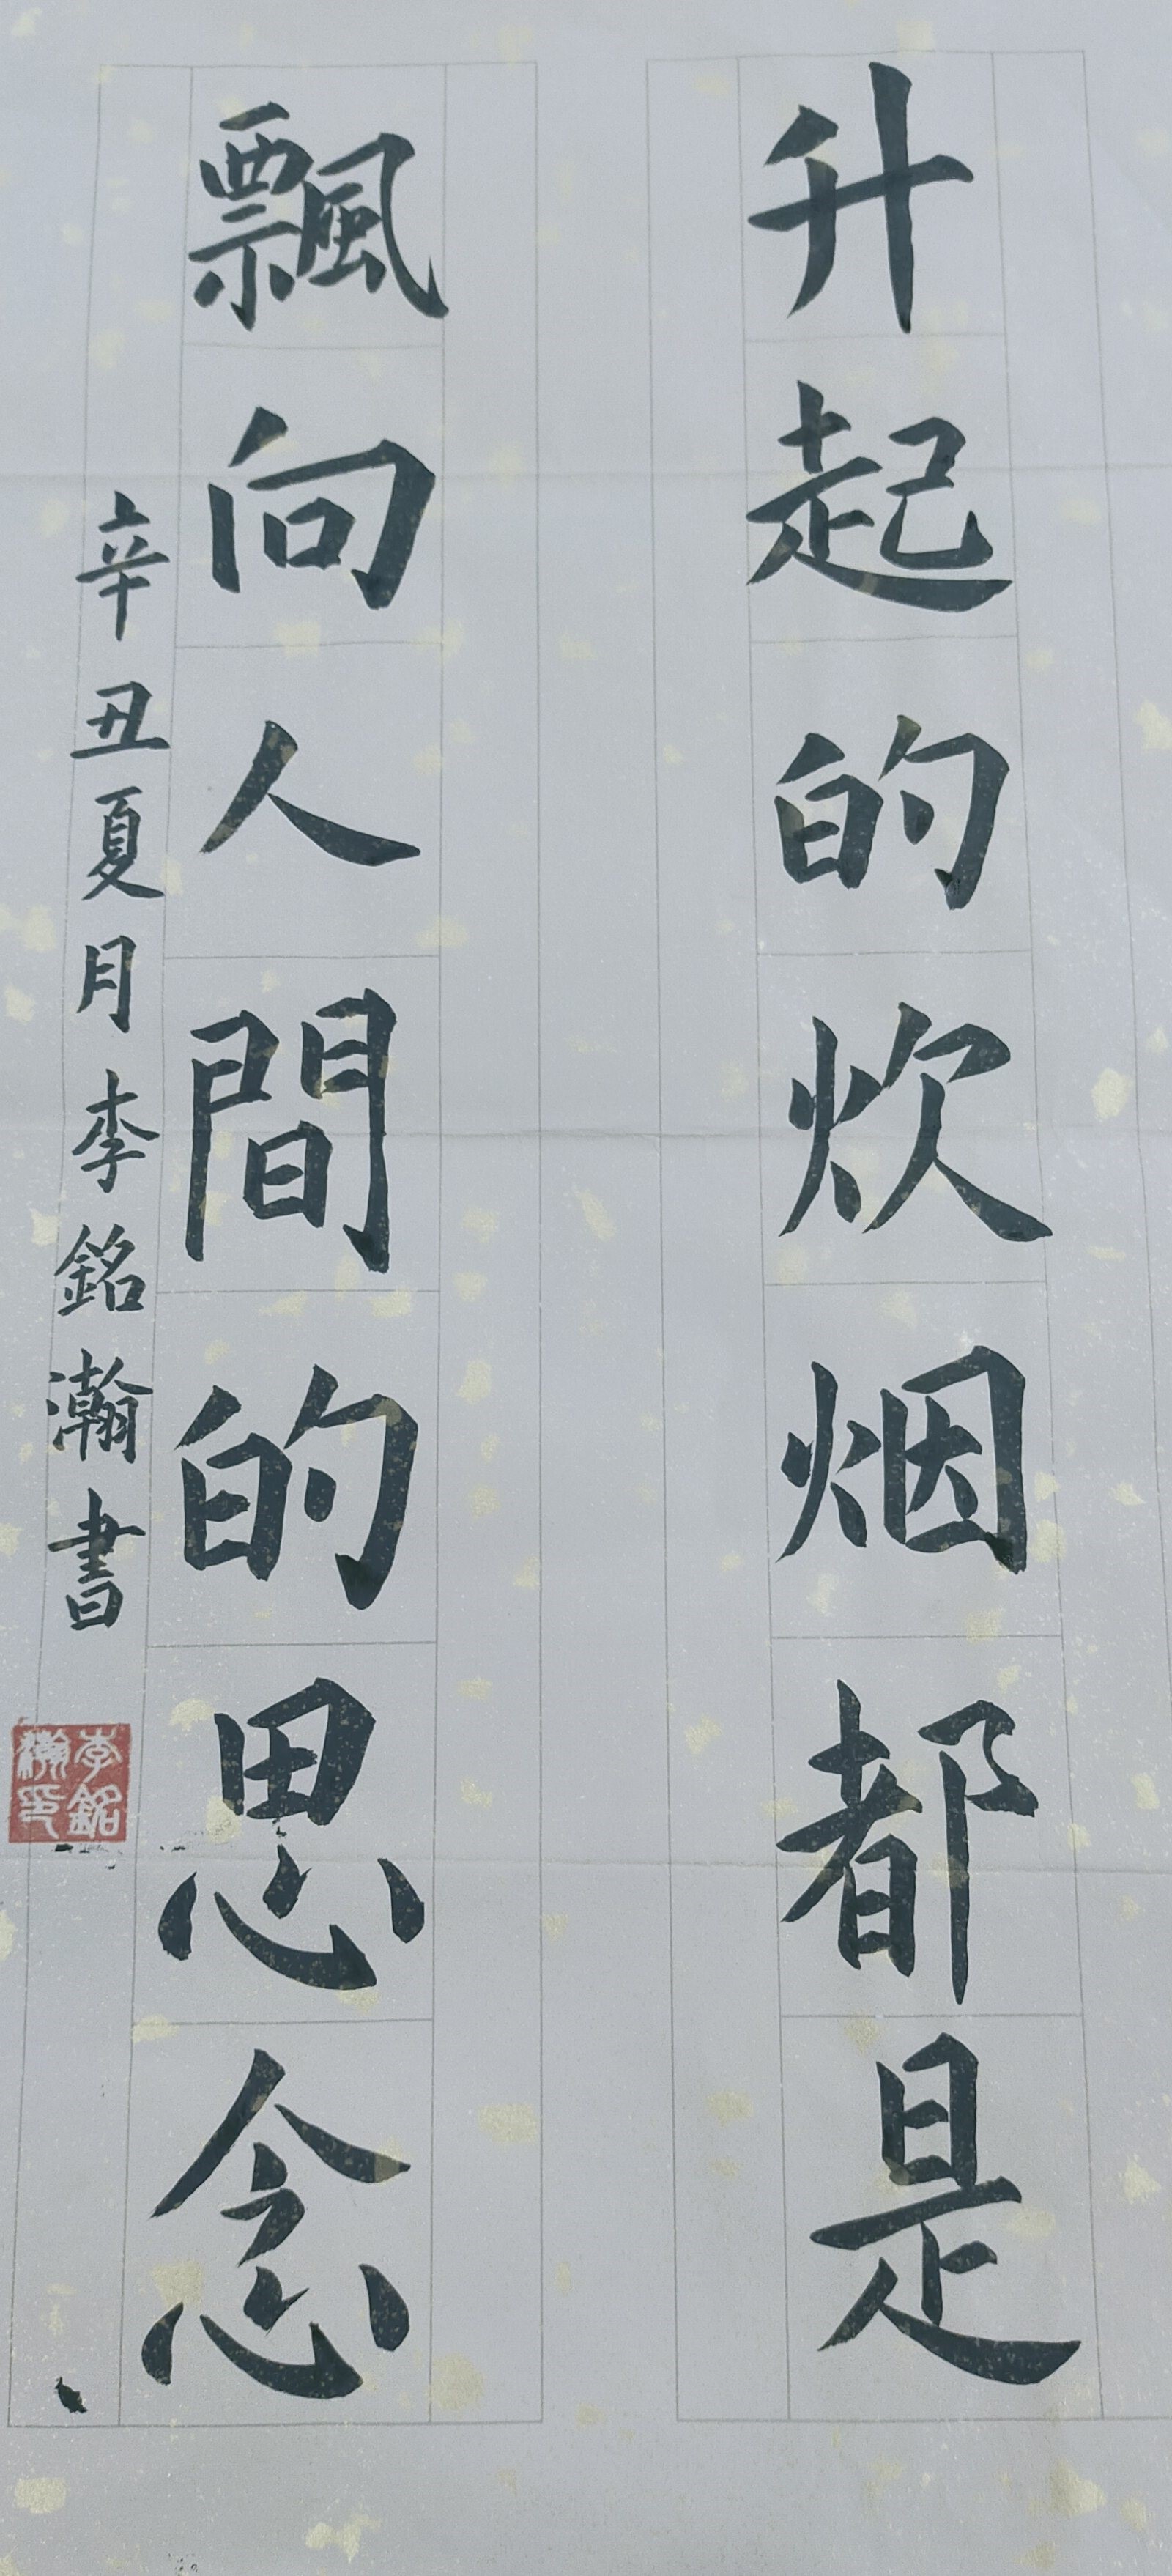 升起的炊烟都是
飄向人間的思念
辛丑夏月李銘瀚書
李銘瀚印